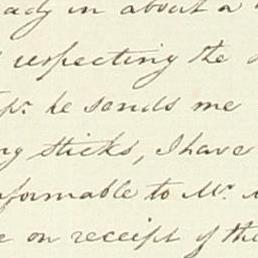 ady in about a
respecting the
he sends me
sticks, I have
formable to Mr.
on receipt of the